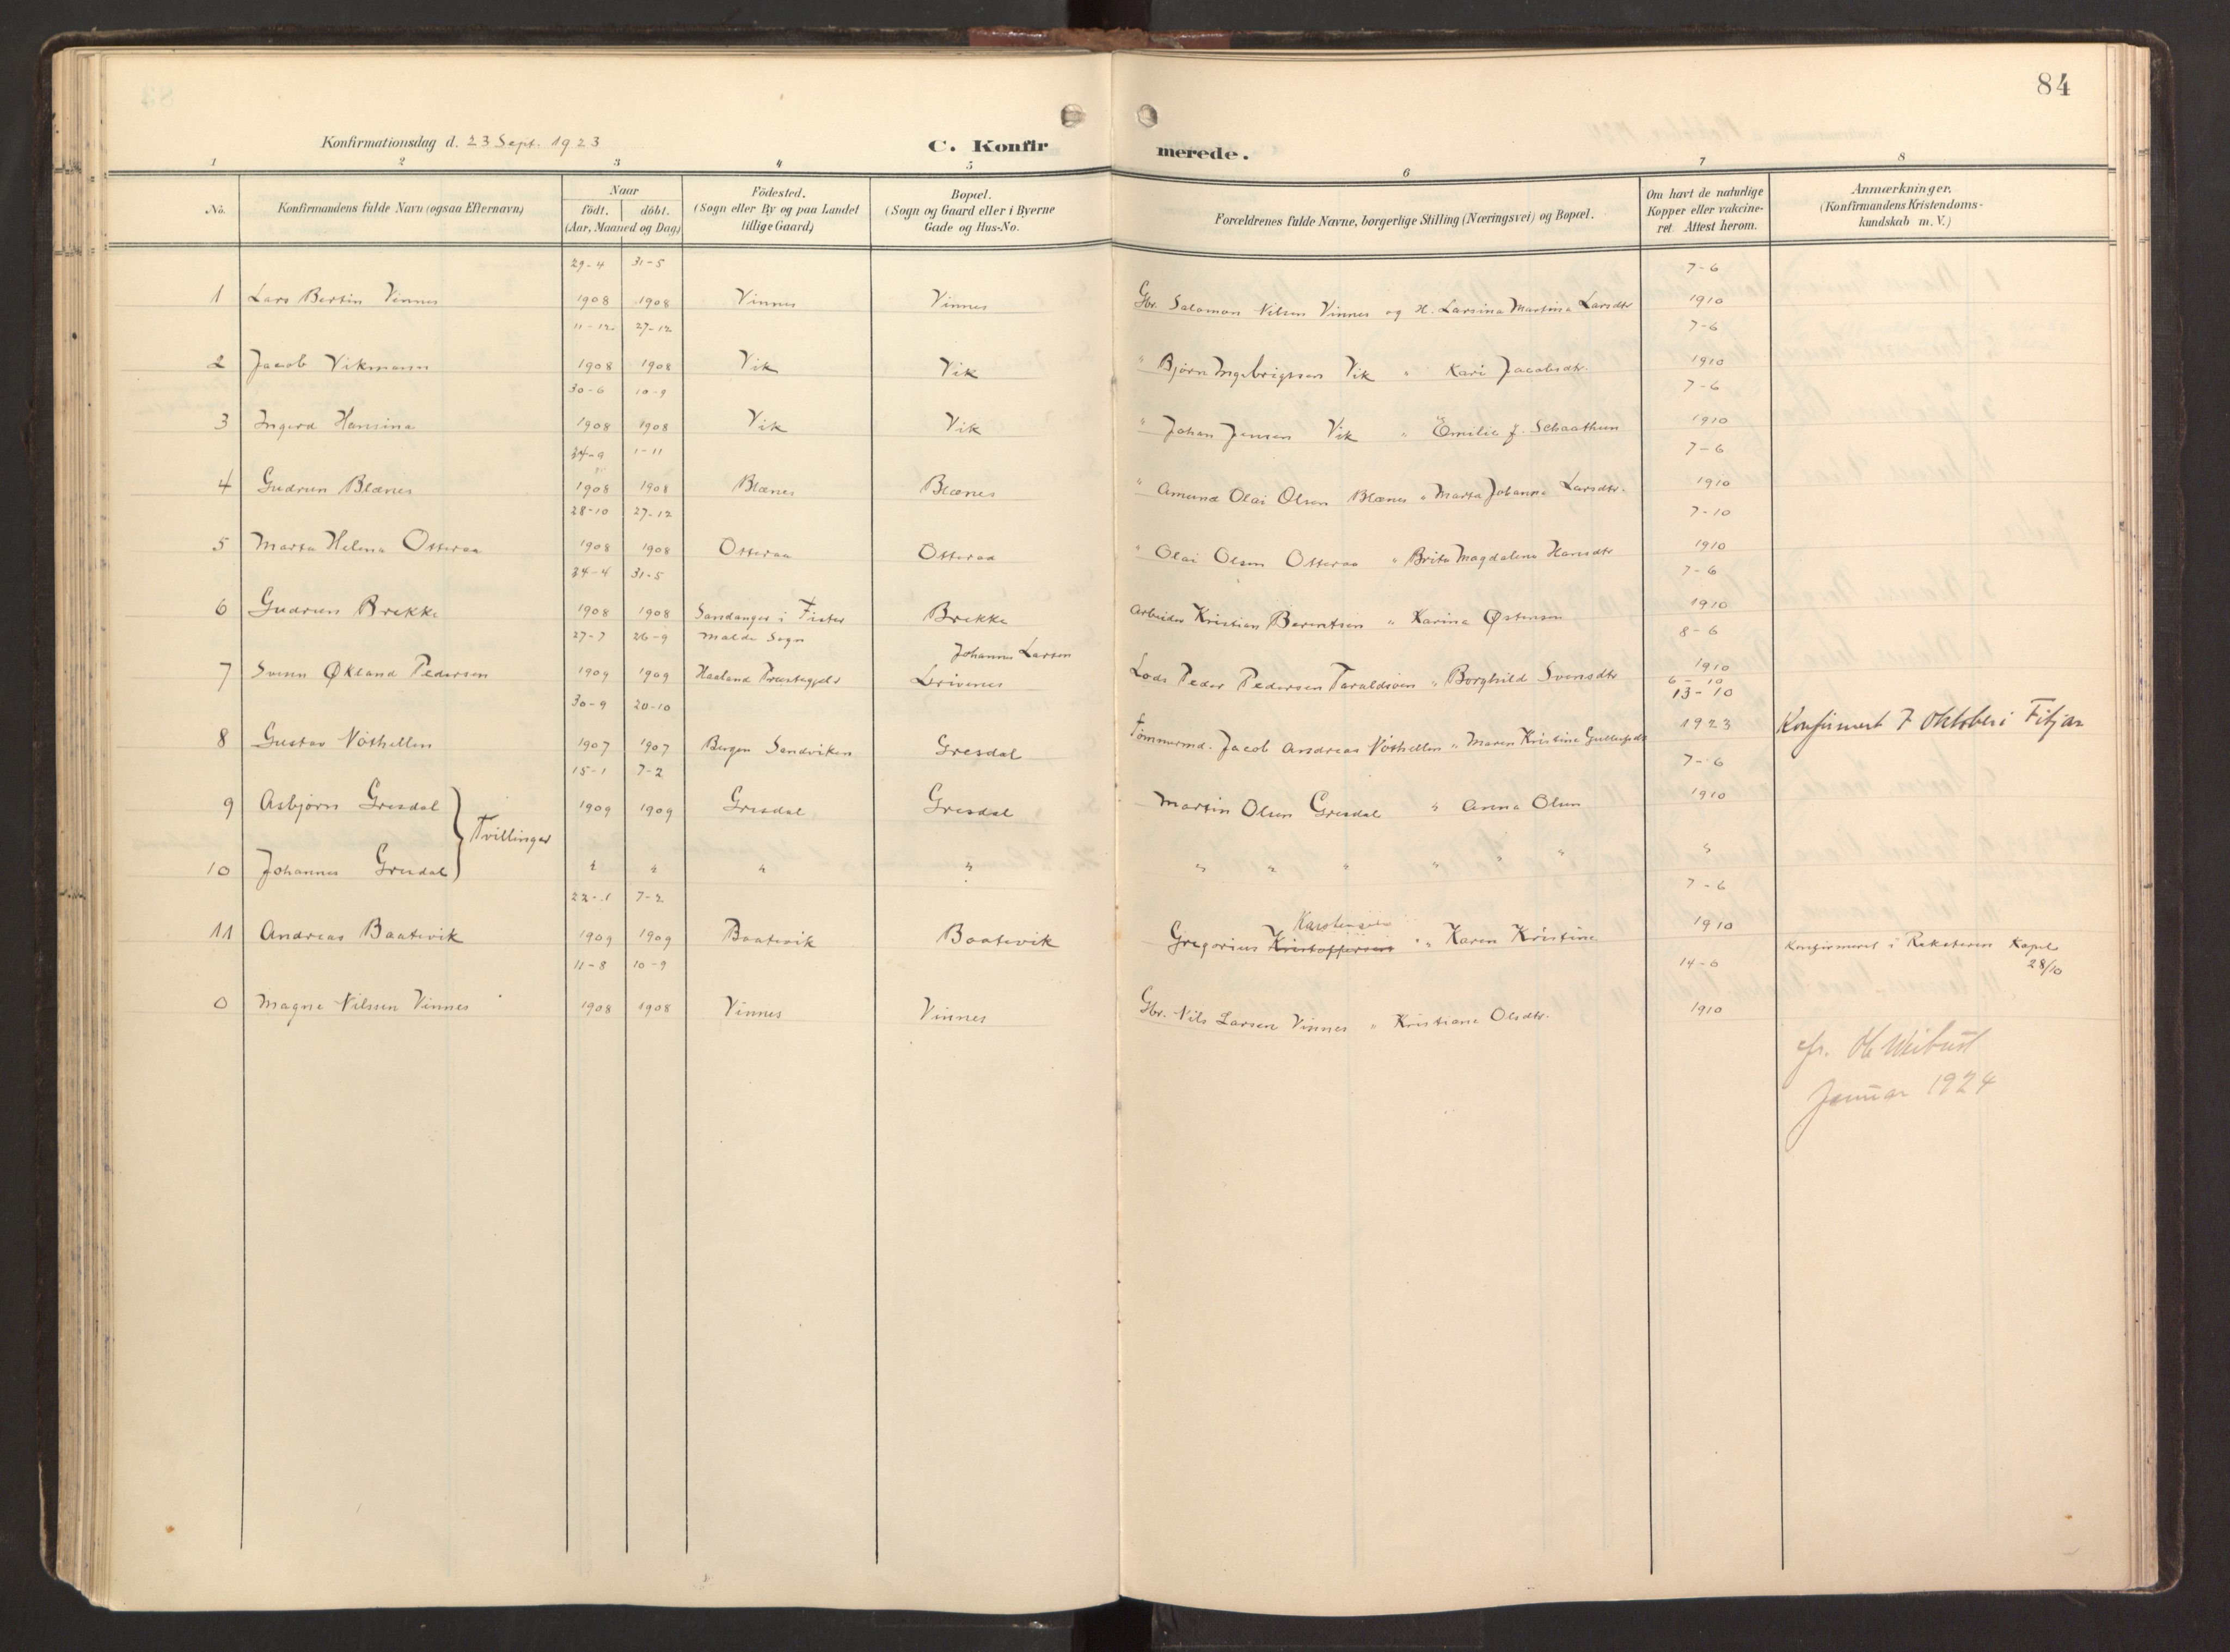 84
Konfirmationsdag d. 23 Sept. 1923
C. Konfirmerede.
1 2 3 4 5 6 7 8
No.
Konfirmandens fulde Navn (ogsaa Efternavn)
Naar
födt. döbt.
(Aar, Maaned og Dag)
Födested.
(Sogn eller By og paa Landet
tillige Gaard)
Bopæl.
(Sogn og Gaard eller i Byerne
Gade og Hus-No.
Forældrenes fulde Navne, borgerlige Stilling (Næringsvei) og Bopæl.
Om havt de naturlige
Kopper eller vakcine-
ret. Attest herom.
Anmærkninger.
(Konfirmandens Kristendoms-
kundskab m. V.)
29-4 31-5 7-6
1 Lars Bertin Vinnes 1908 1908 Vinnes Vinnes Gbr. Salomon Nilsen Vinnes og H. Larsina Martina Larsdtr 1910
11-12 27-12 7-6
2 Jacob Vikmann 1908 1908 Vik Vik " Bjørn Ingebrigtsen Vik " Kari Jacobsdtr. 1910
30-6 10-9 7-6
3 Ingerd Hansina 1908 1908 Vik Vik " Johan Jensen Vik " Emilie J. Schaathun 1910
24-9 1-11 7-6
4 Gudrun Blænes 1908 1908 Blænes Blænes " Amund Olai Olsen Blænes " Marta Johanna Larsdtr. 1910
28-10 27-12 7-10
5 Marta Helena Otteraa 1908 1908 Otteraa Otteraa " Olai Olsen Otteraa " Brita Magdalena Hansdtr 1910
24-4 31-5 7-6
6 Gudrun Brekke 1908 1908 Sandanger i Fister Brekke Arbeider Kristian Berentsen " Karina Østensen 1910
27-7 26-9 Malde Sogn Johannes Larsen 8-6
7 Svenn Økland Pedersen 1909 1909 Haaland Præstegjeld Drivenes Lods Peder Pedersen Taraldsøen " Borghild Svensdtr 1910
6-10
30-9 20-10 13-10
8 Gustav Nöshellen 1907 1907 Bergen Sandviken Gresdal Tømmermd. Jacob Andreas Nöshellen " Maren Kristine 1923 Konfirmert 7 Oktober i Fitjar
15-1 7-2 7-6
9 Asbjørn Gresdal 1909 1909 Gresdal Gresdal Martin Olsen Gresdal " Anna Olsen 1910
Tvillinger
10 Johannes Gresdal " " " " " " " " " " "
22-1 7-2 7-6
Karstensen
11 Andreas Baatevik 1909 1909 Baatevik Baatevik Gregorius Kristoffersen " Karen Kristine 1910 Konfirmeret i Reksteren Kapel
28/10
11-8 10-9 14-6
0 Magne Nilssen Vinnes 1908 1908 Vinnes Vinnes Gbr. Nils Larsen Vinnes " Kristiane Olsdtr. 1910
Januar 1924